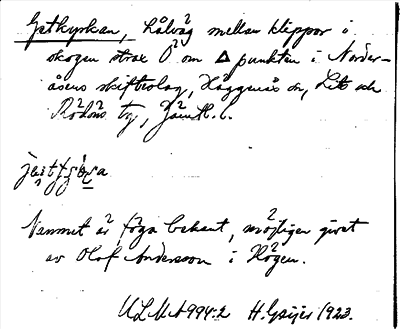 Getkyrkan, hålväg mellan klippor i
skogen strax O om Δ punkten i Norder-
åsens skifteslag, Häggenås sn, Lits och
Rödöns tg, Jämtl. l.
Namnet är föga bekant, möjligen givet
av Olof Andersson i Högen.
ULMA 994:2 H. Geijer 1923.